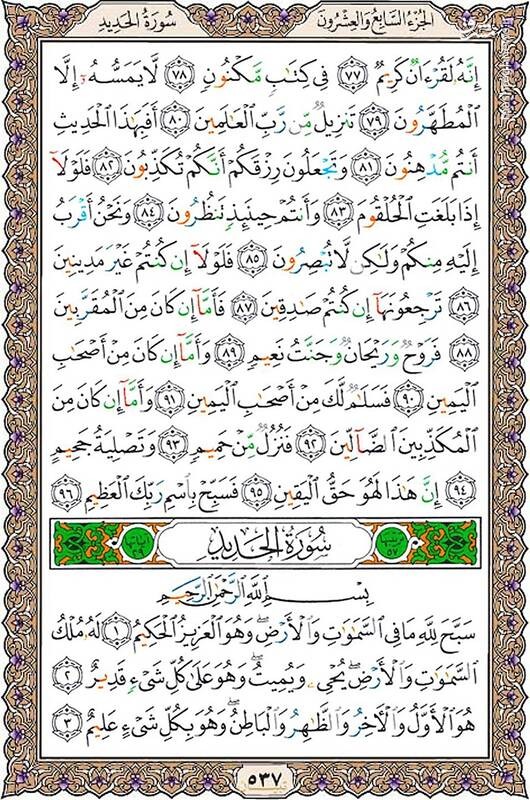 الجزء السابع والعشرون
سورة الحديد
إِنَّهُۥ لَقُرْءَانٌ كَرِيمٌ ٧٧ فِى كِتَٰبٍ مَّكْنُونٍ ٧٨ لَّا يَمَسُّهُۥٓ إِلَّا
ٱلْمُطَهَّرُونَ ٧٩ تَنزِيلٌ مِّن رَّبِّ ٱلْعَٰلَمِينَ ٨٠ أَفَبِهَٰذَا ٱلْحَدِيثِ
أَنتُم مُّدْهِنُونَ ٨١ وَتَجْعَلُونَ رِزْقَكُمْ أَنَّكُمْ تُكَذِّبُونَ ٨٢ فَلَوْلَآ
إِذَا بَلَغَتِ ٱلْحُلْقُومَ ٨٣ وَأَنتُمْ حِينَئِذٍ تَنظُرُونَ ٨٤ وَنَحْنُ أَقْرَبُ
إِلَيْهِ مِنكُمْ وَلَٰكِن لَّا تُبْصِرُونَ ٨٥ فَلَوْلَآ إِن كُنتُمْ غَيْرَ مَدِينِينَ
٨٦ تَرْجِعُونَهَآ إِن كُنتُمْ صَٰدِقِينَ ٨٧ فَأَمَّآ إِن كَانَ مِنَ ٱلْمُقَرَّبِينَ
٨٨ فَرَوْحٌ وَرَيْحَانٌ وَجَنَّتُ نَعِيمٍ ٨٩ وَأَمَّآ إِن كَانَ مِنْ أَصْحَٰبِ
ٱلْيَمِينِ ٩٠ فَسَلَٰمٌ لَّكَ مِنْ أَصْحَٰبِ ٱلْيَمِينِ ٩١ وَأَمَّآ إِن كَانَ مِنَ
ٱلْمُكَذِّبِينَ ٱلضَّآلِّينَ ٩٢ فَنُزُلٌ مِّنْ حَمِيمٍ ٩٣ وَتَصْلِيَةُ جَحِيمٍ
٩٤ إِنَّ هَٰذَا لَهُوَ حَقُّ ٱلْيَقِينِ ٩٥ فَسَبِّحْ بِٱسْمِ رَبِّكَ ٱلْعَظِيمِ ٩٦
ترتيبها ٥٧ سورة الحديد آياتها ٢٩
بِسْمِ ٱللَّهِ ٱلرَّحْمَٰنِ ٱلرَّحِيمِ
سَبَّحَ لِلَّهِ مَا فِى ٱلسَّمَٰوَٰتِ وَٱلْأَرْضِۖ وَهُوَ ٱلْعَزِيزُ ٱلْحَكِيمُ ١ لَهُۥ مُلْكُ
ٱلسَّمَٰوَٰتِ وَٱلْأَرْضِۖ يُحْىِۦ وَيُمِيتُۖ وَهُوَ عَلَىٰ كُلِّ شَىْءٍ قَدِيرٌ ٢
هُوَ ٱلْأَوَّلُ وَٱلْءَاخِرُ وَٱلظَّٰهِرُ وَٱلْبَاطِنُۖ وَهُوَ بِكُلِّ شَىْءٍ عَلِيمٌ ٣
٥٣٧